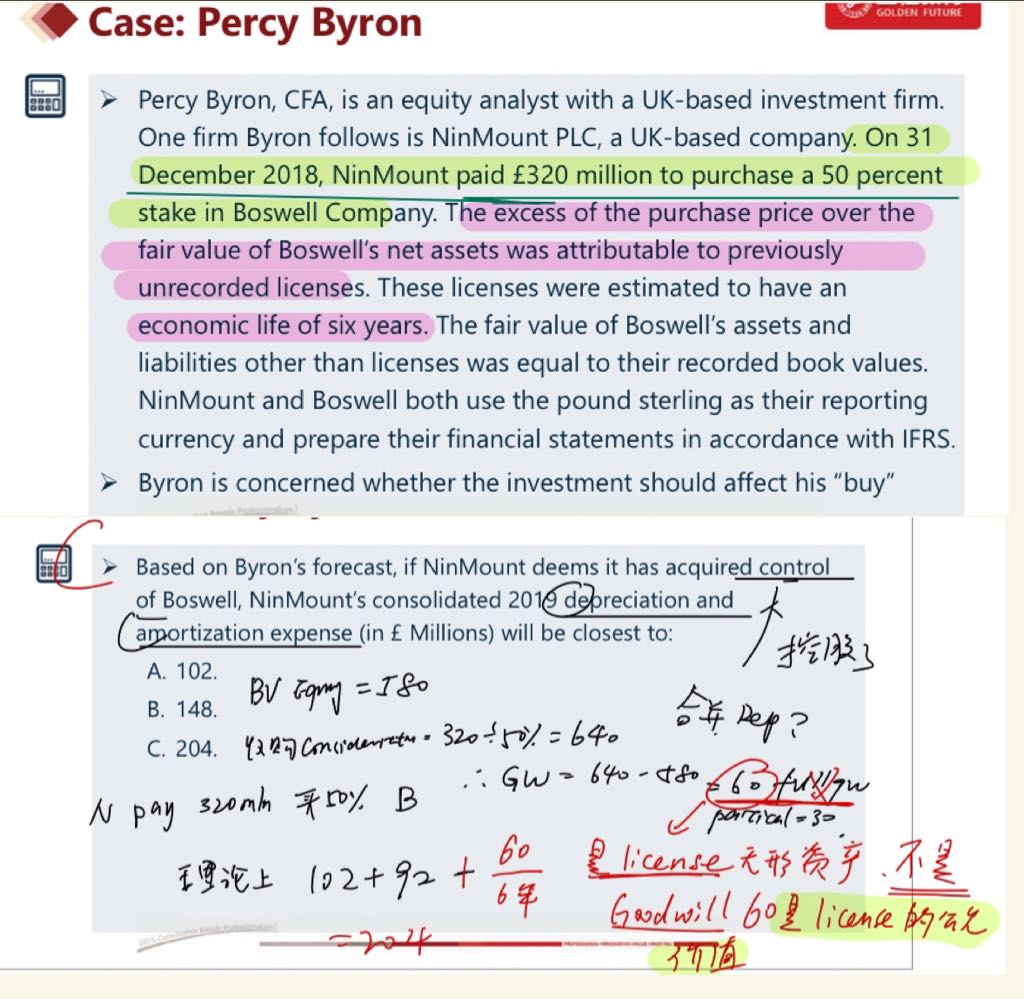 Case: Percy Byron
GOLDEN FUTURE
➢ Percy Byron, CFA, is an equity analyst with a UK-based investment firm.
One firm Byron follows is NinMount PLC, a UK-based company. On 31
December 2018, NinMount paid £320 million to purchase a 50 percent
stake in Boswell Company. The excess of the purchase price over the
fair value of Boswell's net assets was attributable to previously
unrecorded licenses. These licenses were estimated to have an
economic life of six years. The fair value of Boswell's assets and
liabilities other than licenses was equal to their recorded book values.
NinMount and Boswell both use the pound sterling as their reporting
currency and prepare their financial statements in accordance with IFRS.
➢ Byron is concerned whether the investment should affect his "buy"
➢ Based on Byron's forecast, if NinMount deems it has acquired control
of Boswell, NinMount's consolidated 2019 depreciation and
amortization expense (in £ Millions) will be closest to:
控股了
A. 102.
B. 148.
C. 204.
BV Equity = 580
合并 Dep?
320÷50% = 640
∴ GW = 640 - 580 = 60 full gw
partical = 30
N pay 320mln 买50% B
理论上 102+92 + 60/6年
= 204
是 license 无形资产. 不是
Goodwill 60是 license 的公允
价值